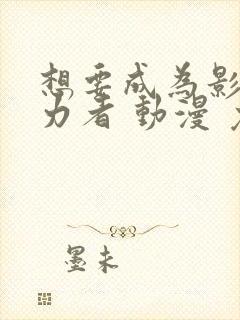 想要成為影
力者 動漫
墨未